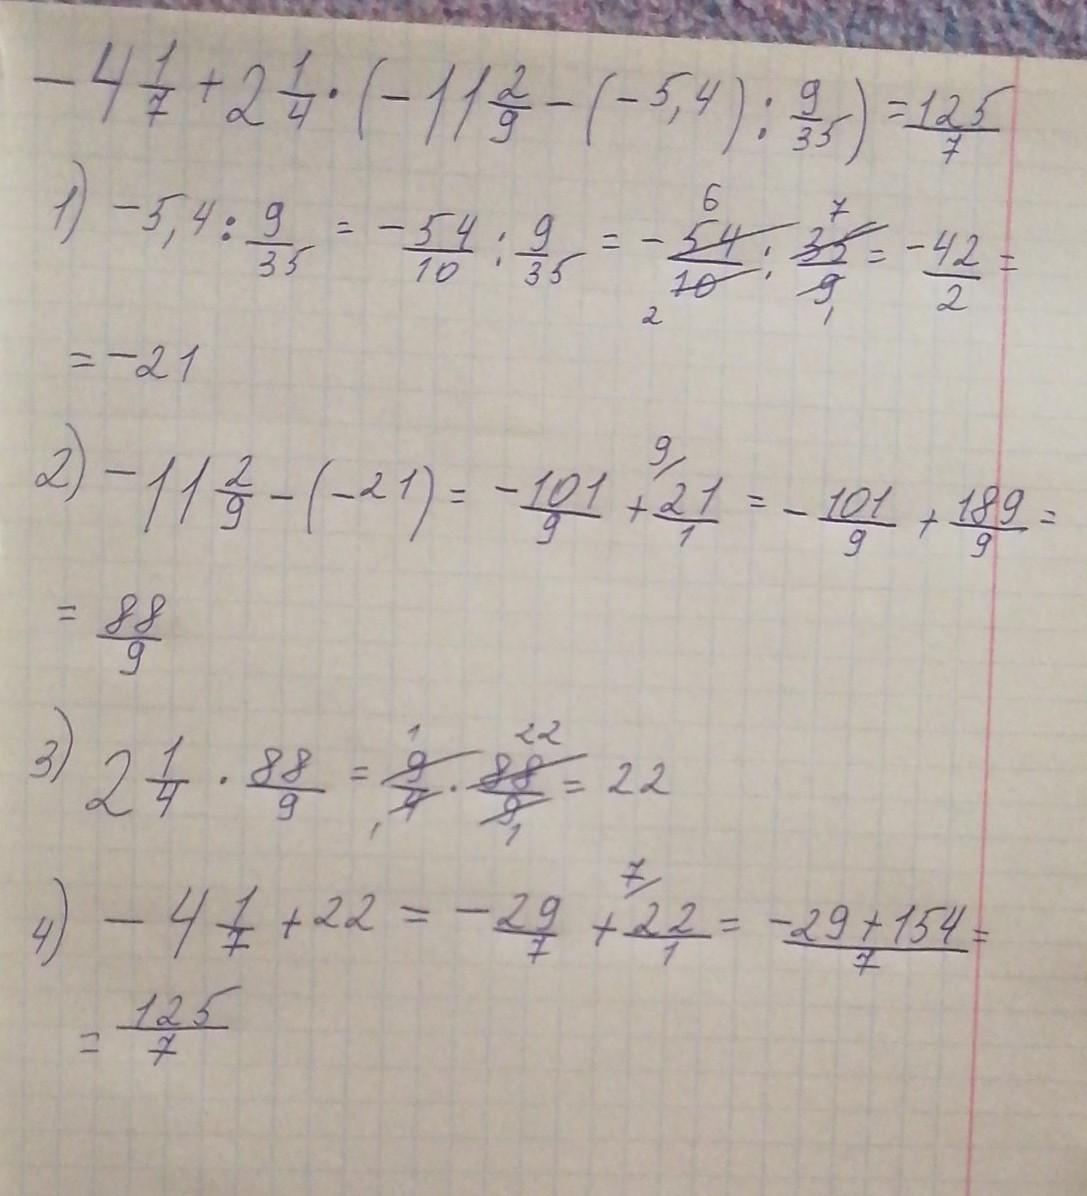 -4 1/7 + 2 1/4 · (-11 2/9 - (-5,4) : 9/35) = 125/7
1) -5,4 : 9/35 = -54/10 : 9/35 = - 54/10 : 35/9 = -42/2 =
= -21
2) -11 2/9 - (-21) = -101/9 + 21/1 = -101/9 + 189/9 =
= 88/9
3) 2 1/4 · 88/9 = 9/4 · 88/9 = 22
4) -4 1/7 + 22 = -29/7 + 22/1 = -29+154/7 =
= 125/7